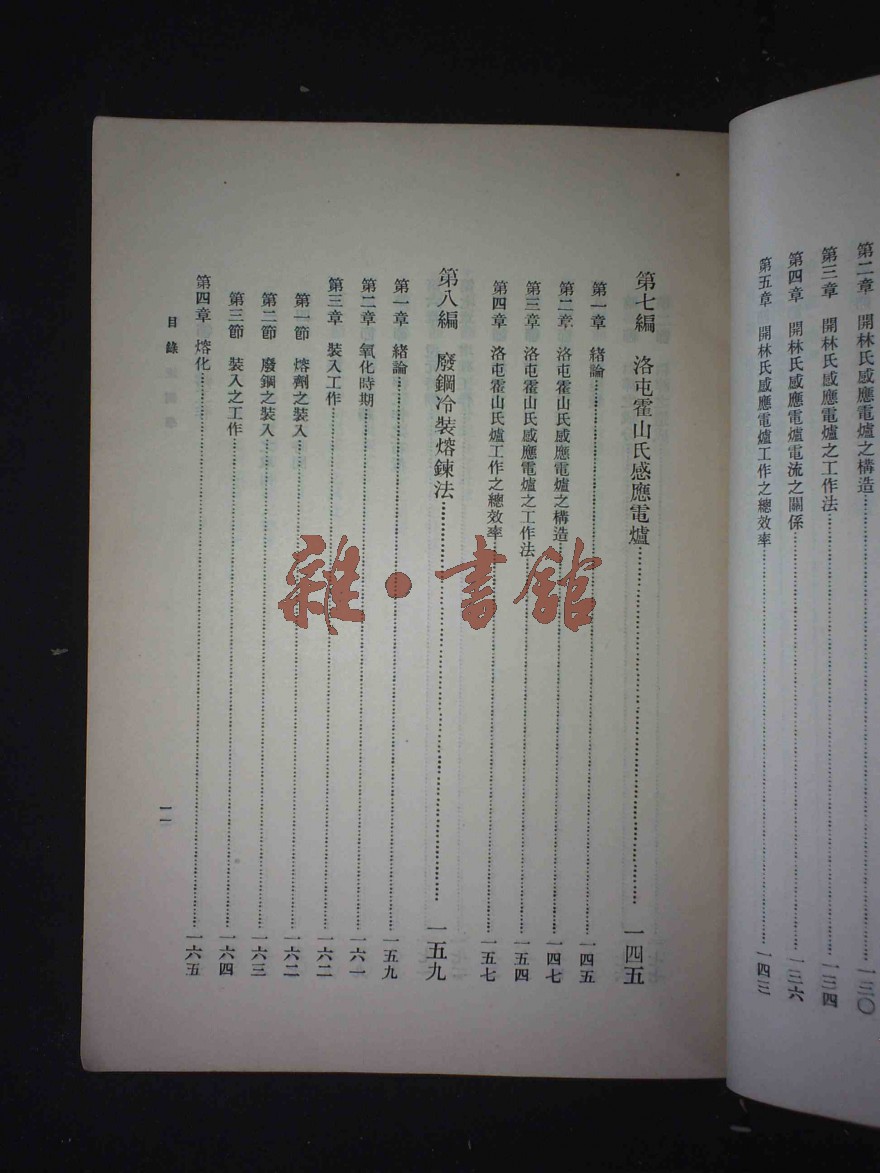 第二章 開林氏感應電爐之構造……一三〇
第三章 開林氏感應電爐之工作法……一三四
第四章 開林氏感應電爐電流之關係……一三六
第五章 開林氏感應電爐工作之總效率……一四三
第七編 洛屯霍山氏感應電爐……一四五
第一章 緒論……一四五
第二章 洛屯霍山氏感應電爐之構造……一四七
第三章 洛屯霍山氏感應電爐之工作法……一五四
第四章 洛屯霍山氏爐工作之總效率……一五七
第八編 廢鋼冷裝熔鍊法……一五九
第一章 緒論……一五九
第二章 氧化時期……一六一
第三章 裝入工作……一六二
第一節 熔劑之裝入……一六二
第二節 廢鋼之裝入……一六三
第三節 裝入之工作……一六四
第四章 熔化……一六五
目錄
一一
雜·書館